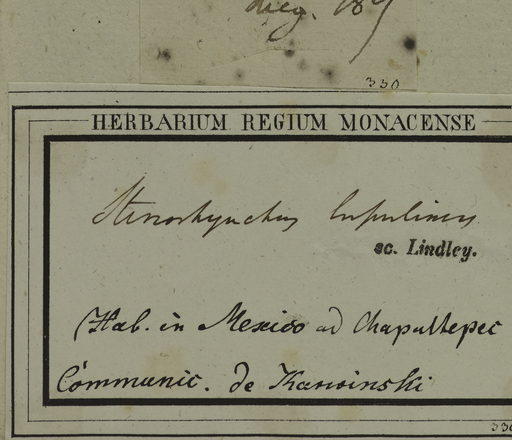 330
HERBARIUM REGIUM MONACENSE
Stenorhynchus lupulinus
sc. Lindley.
Hab. in Mexico ad Chapultepec
Communic. de Karwinski
330